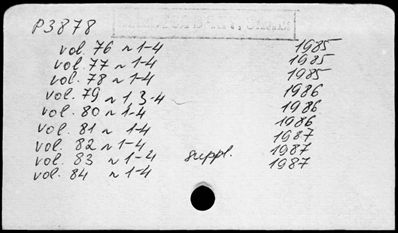 P3878
vol. 76 ~ 1-4 1985
vol. 77 ~ 1-4 1985
vol. 78 ~ 1-4 1985
vol. 79 ~ 1 3-4 1986
vol. 80 ~ 1-4 1986
vol. 81 ~ 1-4 1986
vol. 82 ~ 1-4 1987
vol. 83 ~ 1-4 suppl. 1987
vol. 84 ~ 1-4 1987